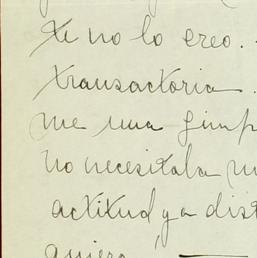 te no lo creo.
transactoria.
me una gimp
no necesitaba m
actitud ya dist
quiera,